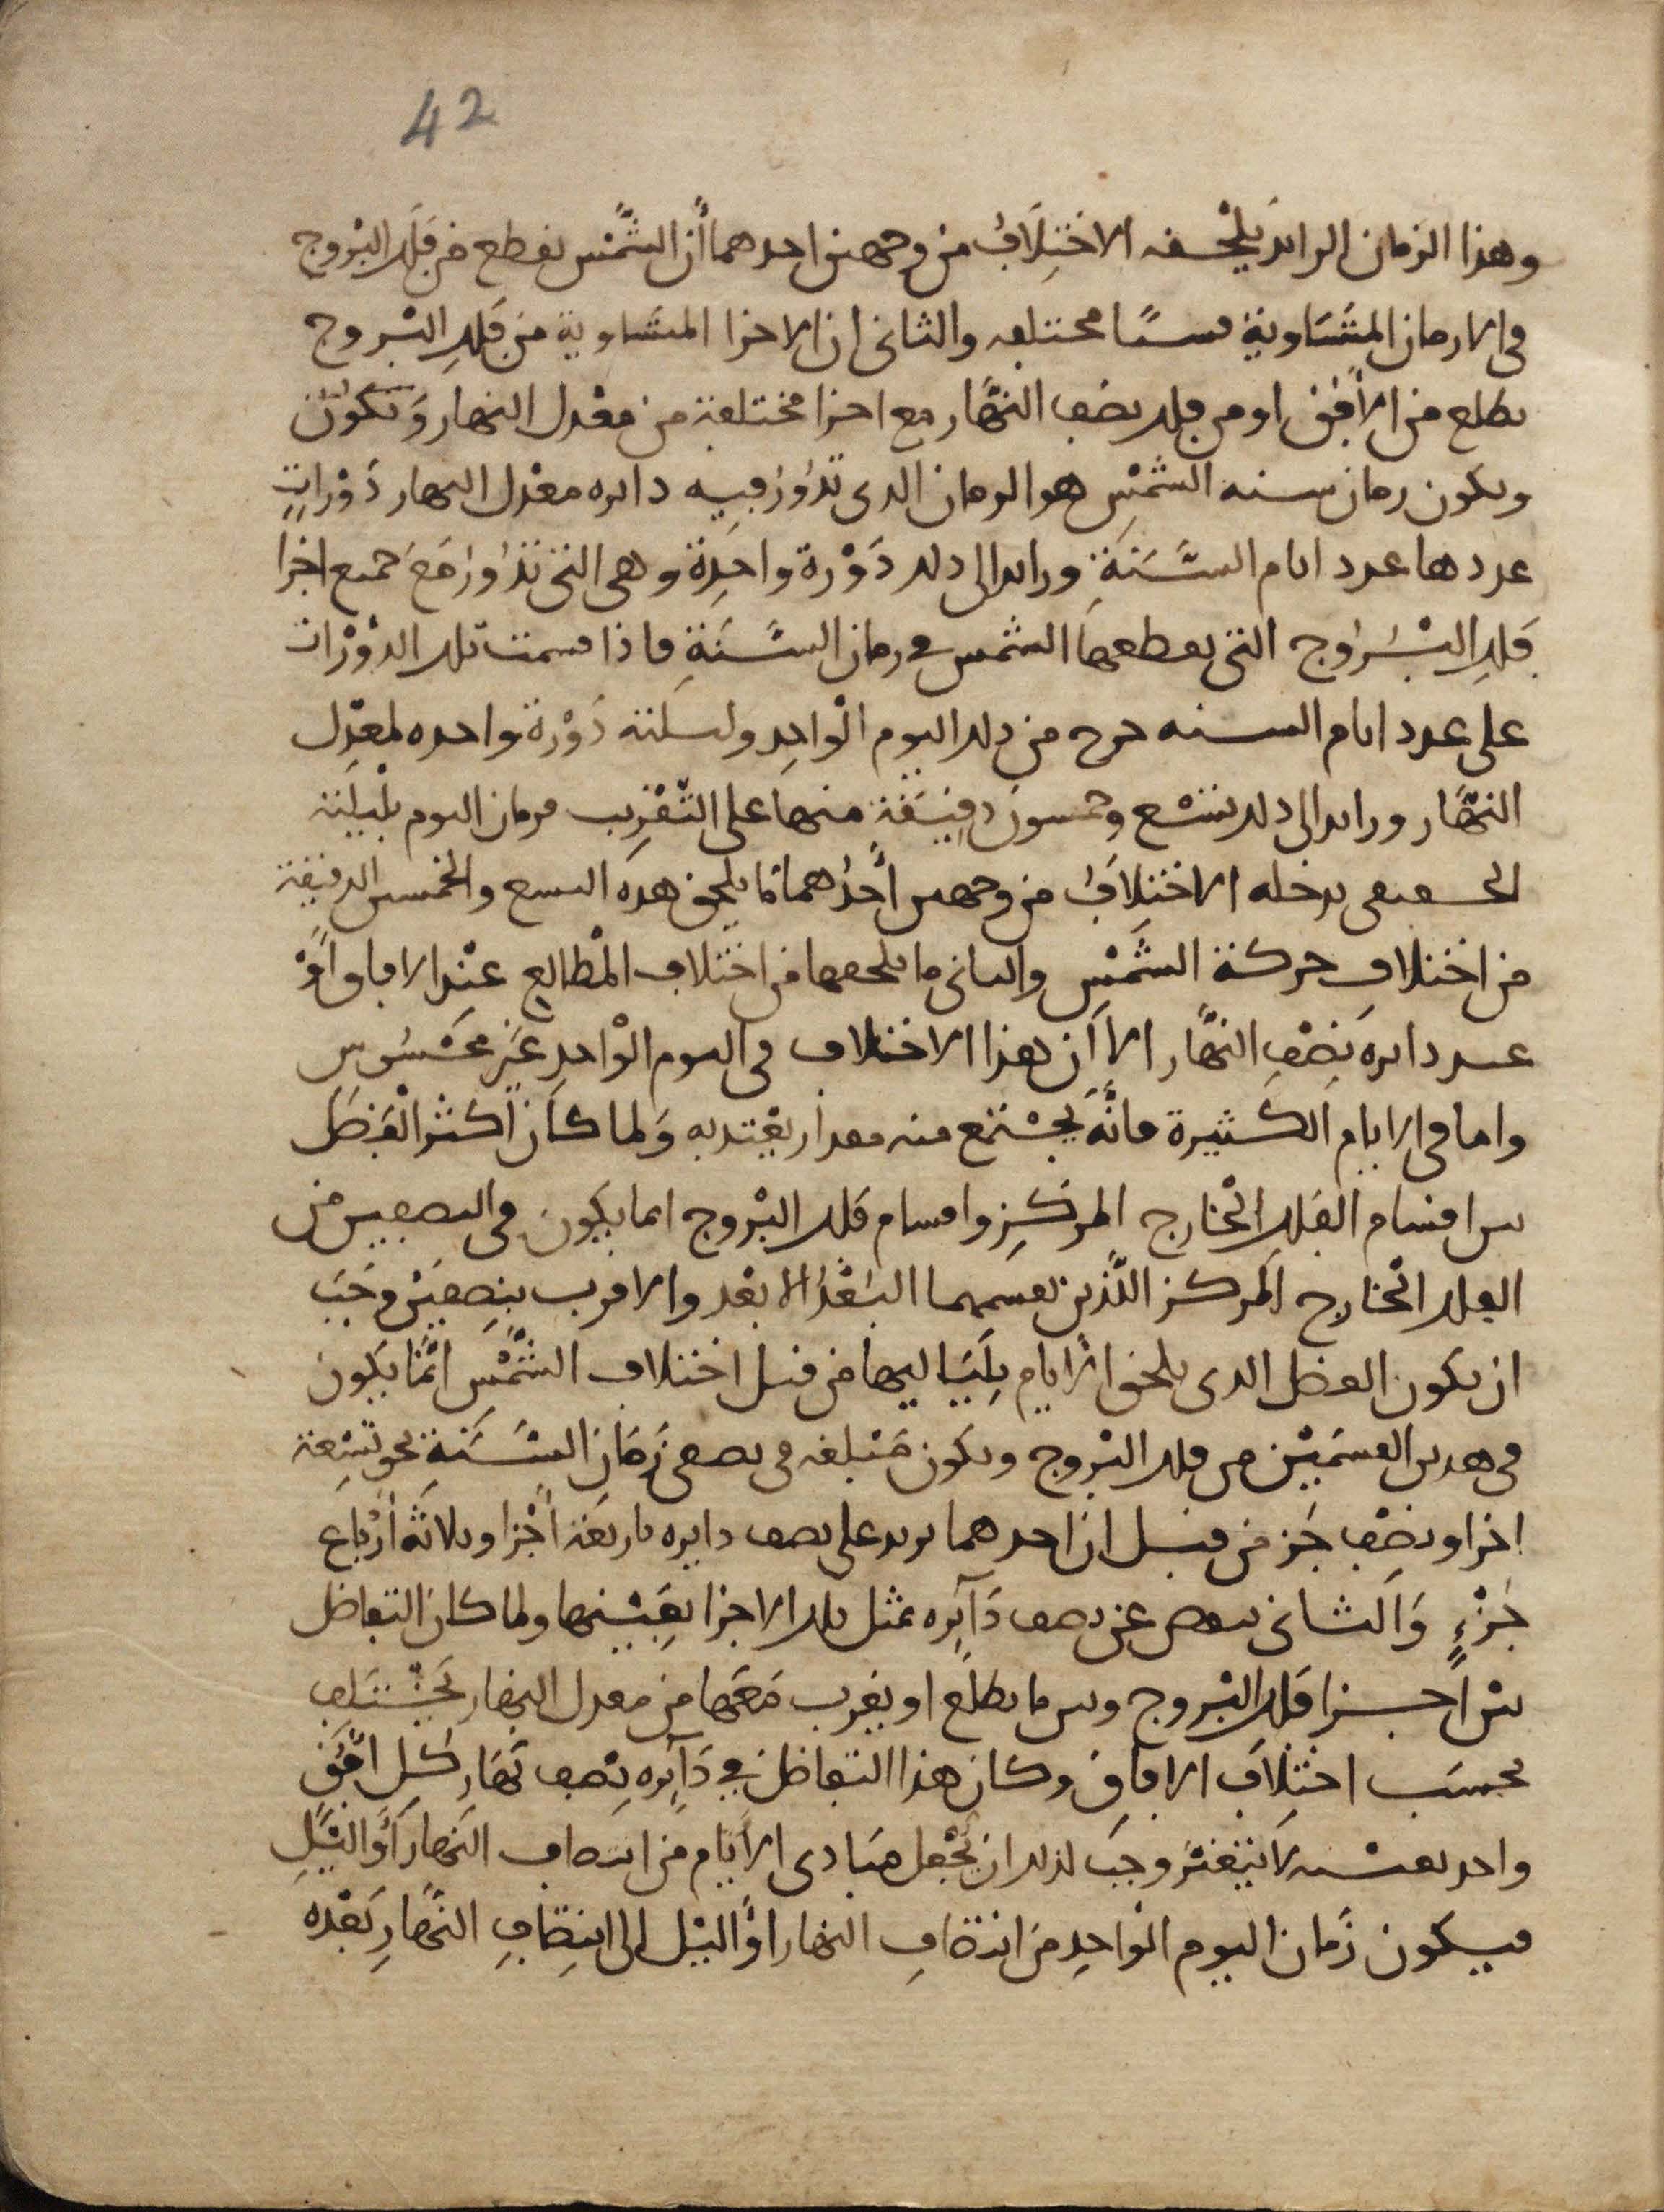 42
وهذا الزمان الزائد يلحقه الاختلاف من وجهين احدهما أن الشمس تقطع من فلك البروج
في الازمان المتساوية قسيا مختلفه والثانى ان الاجزا المتساوية من فلك البروج
تطلع من الأفق او من فلك نصف النهار مع اجزا مختلفة من معدل النهار وتكون
ويكون زمان سنه الشمس هو الزمان الذى تدور فيه دائره معدل النهار دورات
عددها عدد ايام السنة وزائدا الى ذلك دورة واحدة وهى التى تدور مع جميع اجزا
فلك البروج التى تقطعها الشمس في زمان السنة فاذا قسمت تلك الدورات
على عدد ايام السنه خرج من ذلك اليوم الواحد وليلته دورة واحده لمعدل
النهار وزائدا الى ذلك تسع وخمسون دقيقة منها على التقريب فزمان اليوم بليلته
الحقيقى يدخله الاختلاف من وجهين أحدهما ما يلحق هذه التسع والخمسين الدقيقة
من اختلاف حركة الشمس والثانى ما يلحقها من اختلاف المطالع عند الافاق أو
عند دائرة نصف النهار الا أن هذا الاختلاف في اليوم الواحد غير محسوس
واما في الايام الكثيرة فانه يجتمع منه مقدار يعتد به ولما كان أكثر الفضل
بين اقسام الفلك الخارج المركز واقسام فلك البروج انما يكون في النصفين من
الفلك الخارج المركز اللذين يقسمهما البعد الابعد والاقرب بنصفين وجب
ان يكون الفضل الذى يلحق الايام بلياليها من قبل اختلاف الشمس انما يكون
في هذين القسمين من فلك البروج ويكون مبلغه في نصفى زمان السنة نحو تسعة
اجزا ونصف جز من قبل ان احدهما يزيد على نصف دايره باربعة أجزا وثلاثة أرباع
جزء والثانى ينقص عن نصف دآئره بمثل تلك الاجزا بعينها ولما كان التفاضل
بين أجزا فلك البروج وبين ما يطلع او يغرب معها من معدل النهار يختلف
بحسب اختلاف الافاق وكان هذا التفاضل في دآئره نصف نهار كل افق
واحد بعينه لا يتغير وجب لذلك ان تجعل مبادى الأيام من انتصاف النهار أو الليل
فيكون زمان اليوم الواحد من انتصاف النهار او اليل الى انتصاف النهار بعده